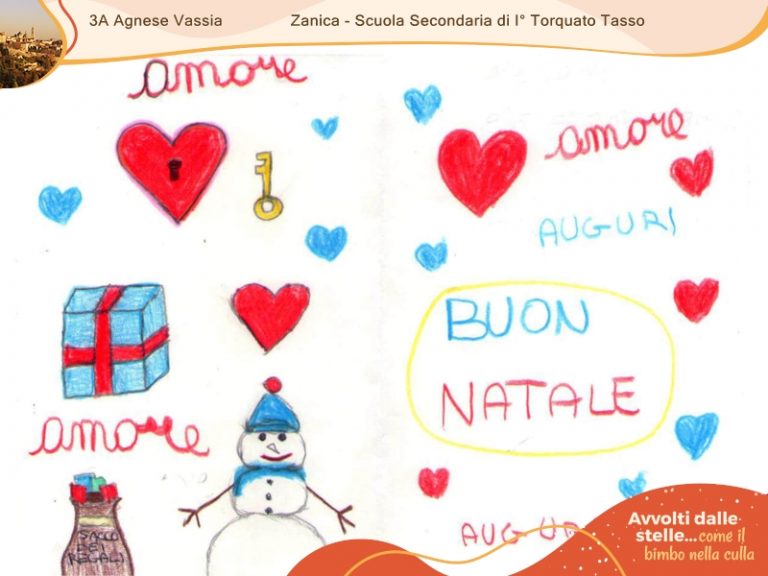 3A Agnese Vassia
Zanica - Scuola Secondaria di I° Torquato Tasso
amore
amore
AUGURI
BUON
NATALE
amore
SACCO
DEI
REGALI
AUGUR
Avvolti dalle
stelle...come il
bimbo nella culla